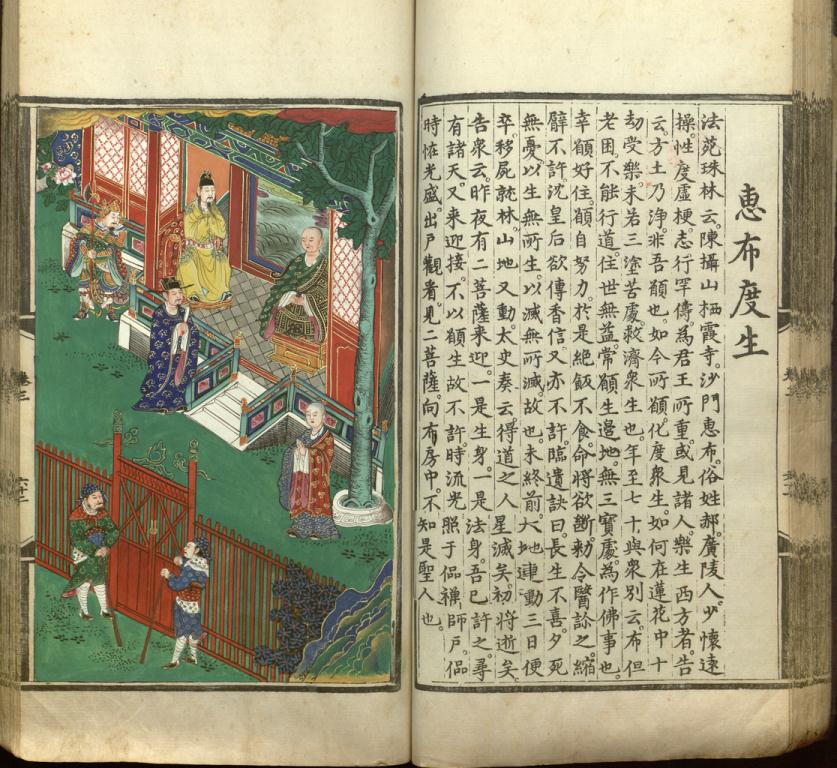 恵布度生
法苑珠林云。陳攝山栖霞寺。沙門恵布。俗姓郝。廣陵人。少懷遠
操。性度虛梗。志行罕儔。為君王所重。或見諸人。樂生西方者。告
云。方土乃淨。非吾願也。如今所願。化度衆生。如何在蓮花中十
劫受樂。未若三塗苦處救濟衆生也。年至七十。與衆別云。布但
老困。不能行道。住世無益。常願生邊地。無三寶處。為作佛事也。
幸願好住。願自努力。於是絕飯不食。命將欲斷。勑令醫診之。縮
臂不許。沈皇后欲傳香信。又亦不許。臨遺訣曰。長生不喜。夕死
無憂。以生無所生。以滅無所滅故也。未終前。大地連動三日。便
卒。移屍就林。山地又動。太史奏云。得道之人星滅矣。初將逝矣。
告衆云。昨夜有二菩薩來迎。一是生身。一是法身。吾已許之。尋
有諸天又來迎接。不以願生故不許。時流光照于侶禪師戶。侶
時恠光盛。出戶觀看。見二菩薩。向布房中。不知是聖人也。